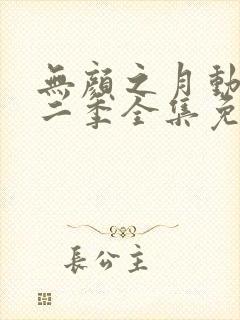 無顏之月動
二季全集免
長公主